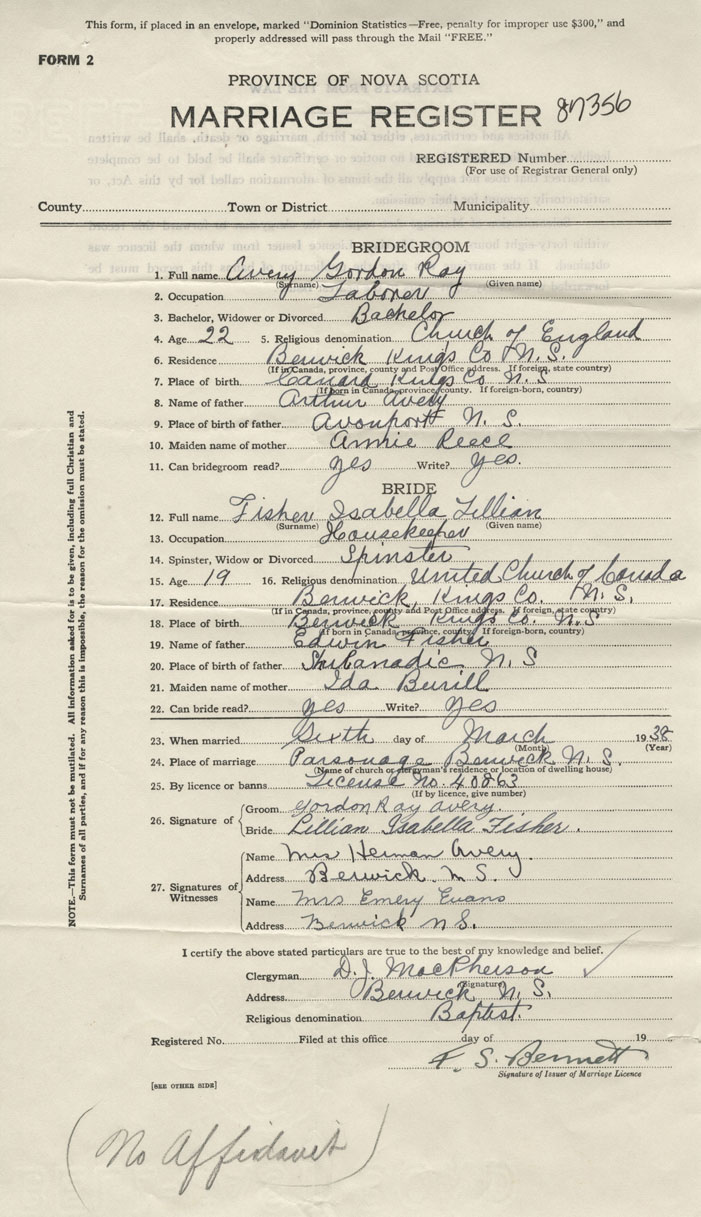 This form, if placed in an envelope, marked "Dominion Statistics—Free, penalty for improper use $300," and
properly addressed will pass through the Mail "FREE."
FORM 2
PROVINCE OF NOVA SCOTIA
MARRIAGE REGISTER 87356
REGISTERED Number
(For use of Registrar General only)
County Town or District Municipality
BRIDEGROOM
1. Full name Avery Gordon Ray
(Surname) (Given name)
2. Occupation Laborer
3. Bachelor, Widower or Divorced Bachelor
4. Age 22 5. Religious denomination Church of England
6. Residence Berwick Kings Co N.S.
(If in Canada, province, county and Post Office address. If foreign, state country)
7. Place of birth Canard Kings Co N.S
(If born in Canada, province, county. If foreign-born, country)
8. Name of father Arthur Avery
9. Place of birth of father Avonport N.S.
10. Maiden name of mother Annie Reece
11. Can bridegroom read? yes Write? yes.
BRIDE
12. Full name Fisher Isabella Lillian
(Surname) (Given name)
13. Occupation Housekeeper
14. Spinster, Widow or Divorced Spinster
15. Age 19 16. Religious denomination United Church of Canada
17. Residence Berwick, Kings Co. N.S.
(If in Canada, province, county and Post Office address. If foreign, state country)
18. Place of birth Berwick Kings Co. N.S
(If born in Canada, province, county. If foreign-born, country)
19. Name of father Edwin Fisher
20. Place of birth of father Shubanadic N.S
21. Maiden name of mother Ida Burill
22. Can bride read? yes Write? yes
23. When married Sixth day of March 1938
(Month) (Year)
24. Place of marriage Parsonage Berwick N.S.
(Name of church or clergyman's residence or location of dwelling house)
25. By licence or banns License No. 40863
(If by licence, give number)
26. Signature of Groom Gordon Ray Avery.
Bride Lillian Isabella Fisher.
27. Signatures of Witnesses
Name Mrs Herman Avery.
Address Berwick N.S.
Name Mrs Emery Evans
Address Berwick N.S.
I certify the above stated particulars are true to the best of my knowledge and belief.
Clergyman D.J. MacPherson
(Signature)
Address Berwick N.S.
Religious denomination Baptist.
Registered No. Filed at this office day of 19
F. S. Bennett
Signature of Issuer of Marriage Licence
[SEE OTHER SIDE]
(No Affidavit)
NOTE.—This form must not be mutilated. All information asked for is to be given, including full Christian and
Surnames of all parties, and if for any reason this is impossible, the reason for the omission must be stated.